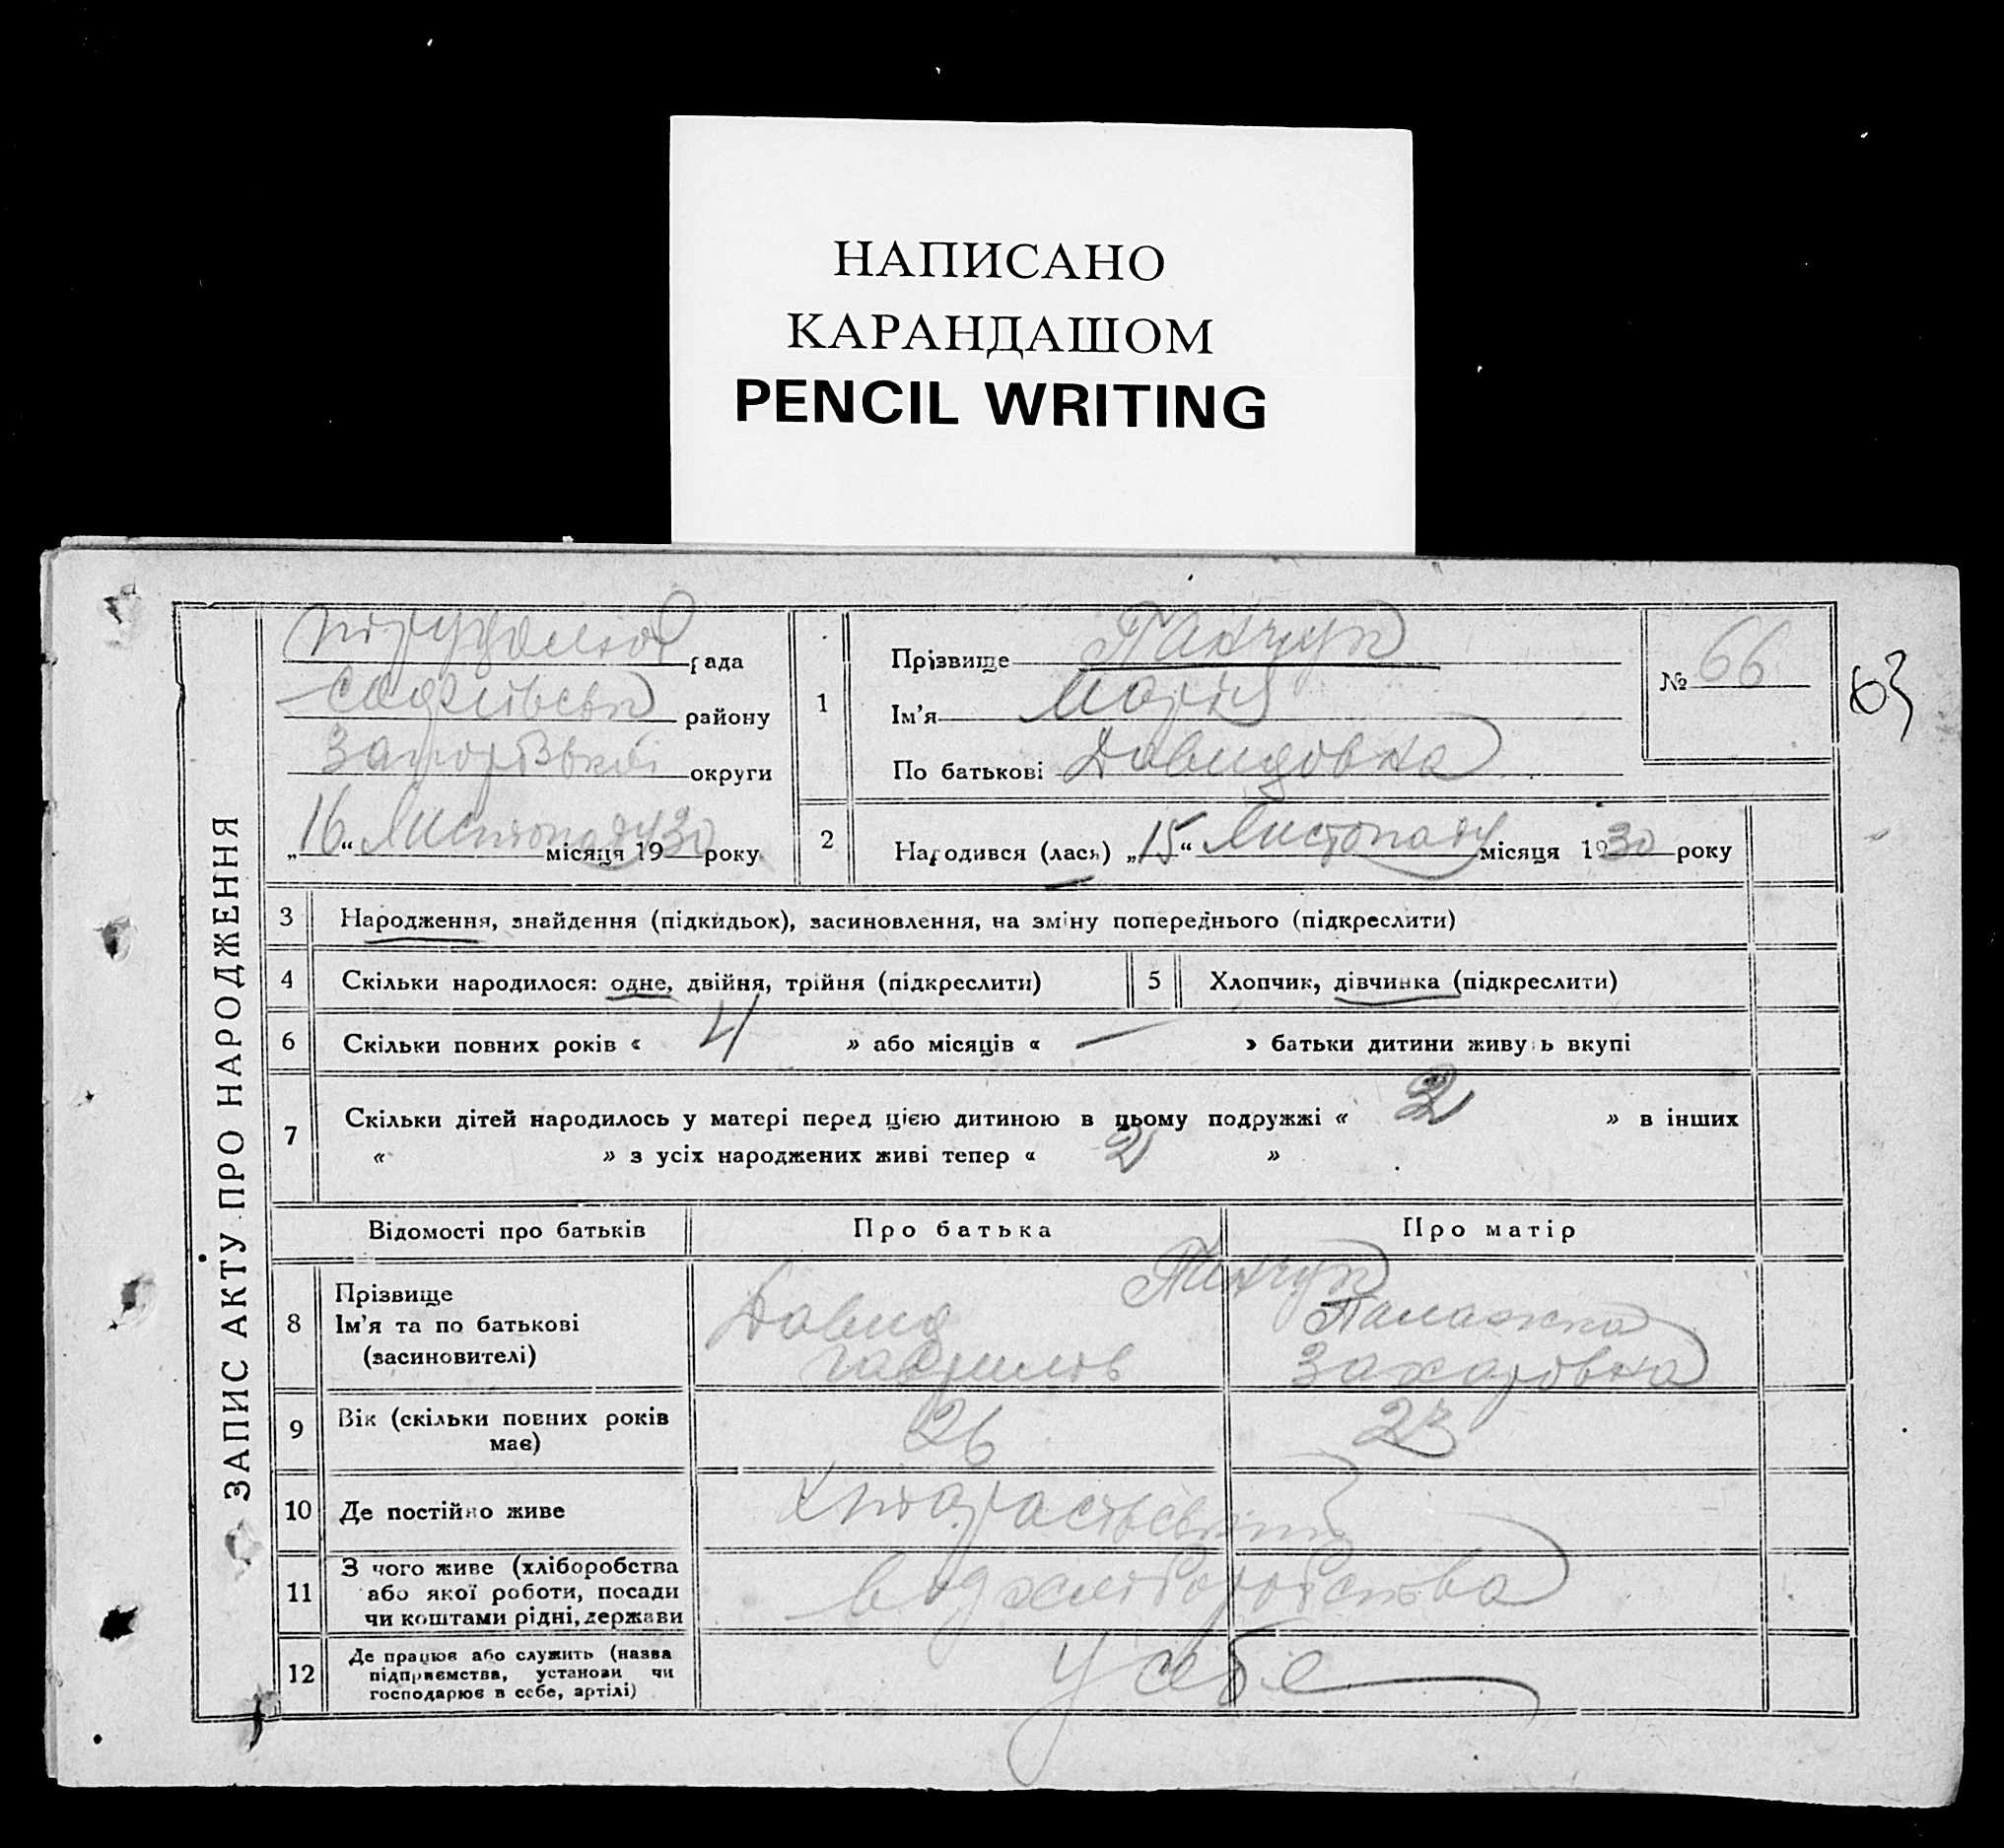 НАПИСАНО
КАРАНДАШОМ
PENCIL WRITING
ЗАПИС АКТУ ПРО НАРОДЖЕННЯ
рада
району
округи
„16“ Листопаду місяця 1930 року
1
Прізвище Панчур
Ім'я Марія
По батькові Давидовна
№ 66
63
2 Народився (лася) „15“ Листопаду місяця 1930 року
3 Народження, знайдення (підкидьок), засиновлення, на зміну попереднього (підкреслити)
4 Скільки народилося: одне, двійня, трійня (підкреслити) 5 Хлопчик, дівчинка (підкреслити)
6 Скільки повних років « 4 » або місяців « — » батьки дитини живуть вкупі
7 Скільки дітей народилось у матері перед цією дитиною в цьому подружжі « 2 » в інших
« » з усіх народжених живі тепер « 2 »
Відомості про батьків Про батька Про матір
8 Прізвище Панчур
Ім'я та по батькові Давид Палажка
(засиновителі) Гаврилов Захаровна
9 Вік (скільки повних років має) 26 23
10 Де постійно живе
11 З чого живе (хліборобства
або якої роботи, посади
чи коштами рідні, держави
від хліборобства
12 Де працює або служить (назва
підприємства, установи чи
господарює в себе, артілі)
У себе